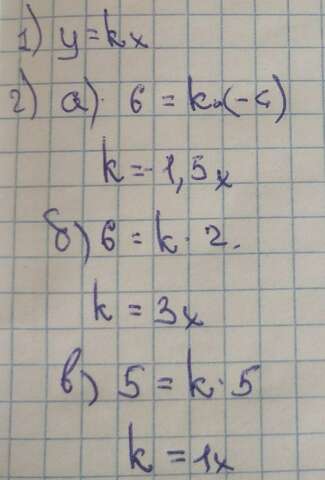 1) y = kx
2) а) 6 = k·(-4)
k = -1,5x
б) 6 = k · 2.
k = 3x
в) 5 = k · 5
k = 1x